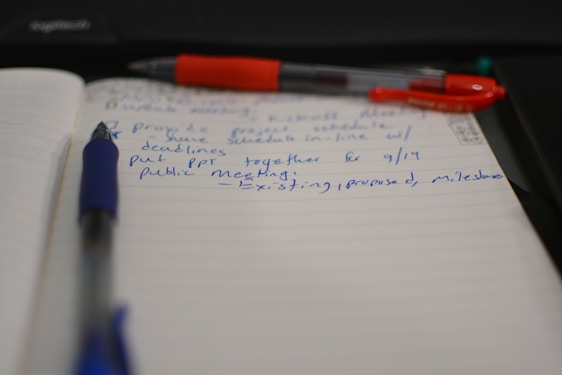 logitech
update meeting:
- Kickoff meeting
provide project schedule
- have schedule in-line w/
deadlines
put PPT together for 9/19
public meeting:
- Existing, proposed, milestone